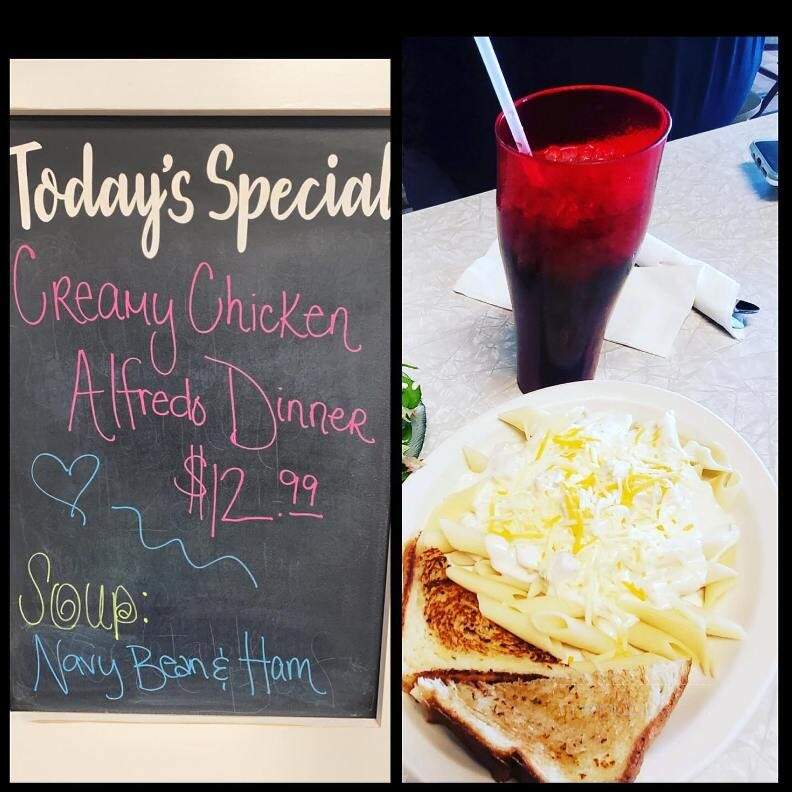 Today's Special
Creamy Chicken
Alfredo Dinner
$12.99
Soup:
Navy Bean & Ham